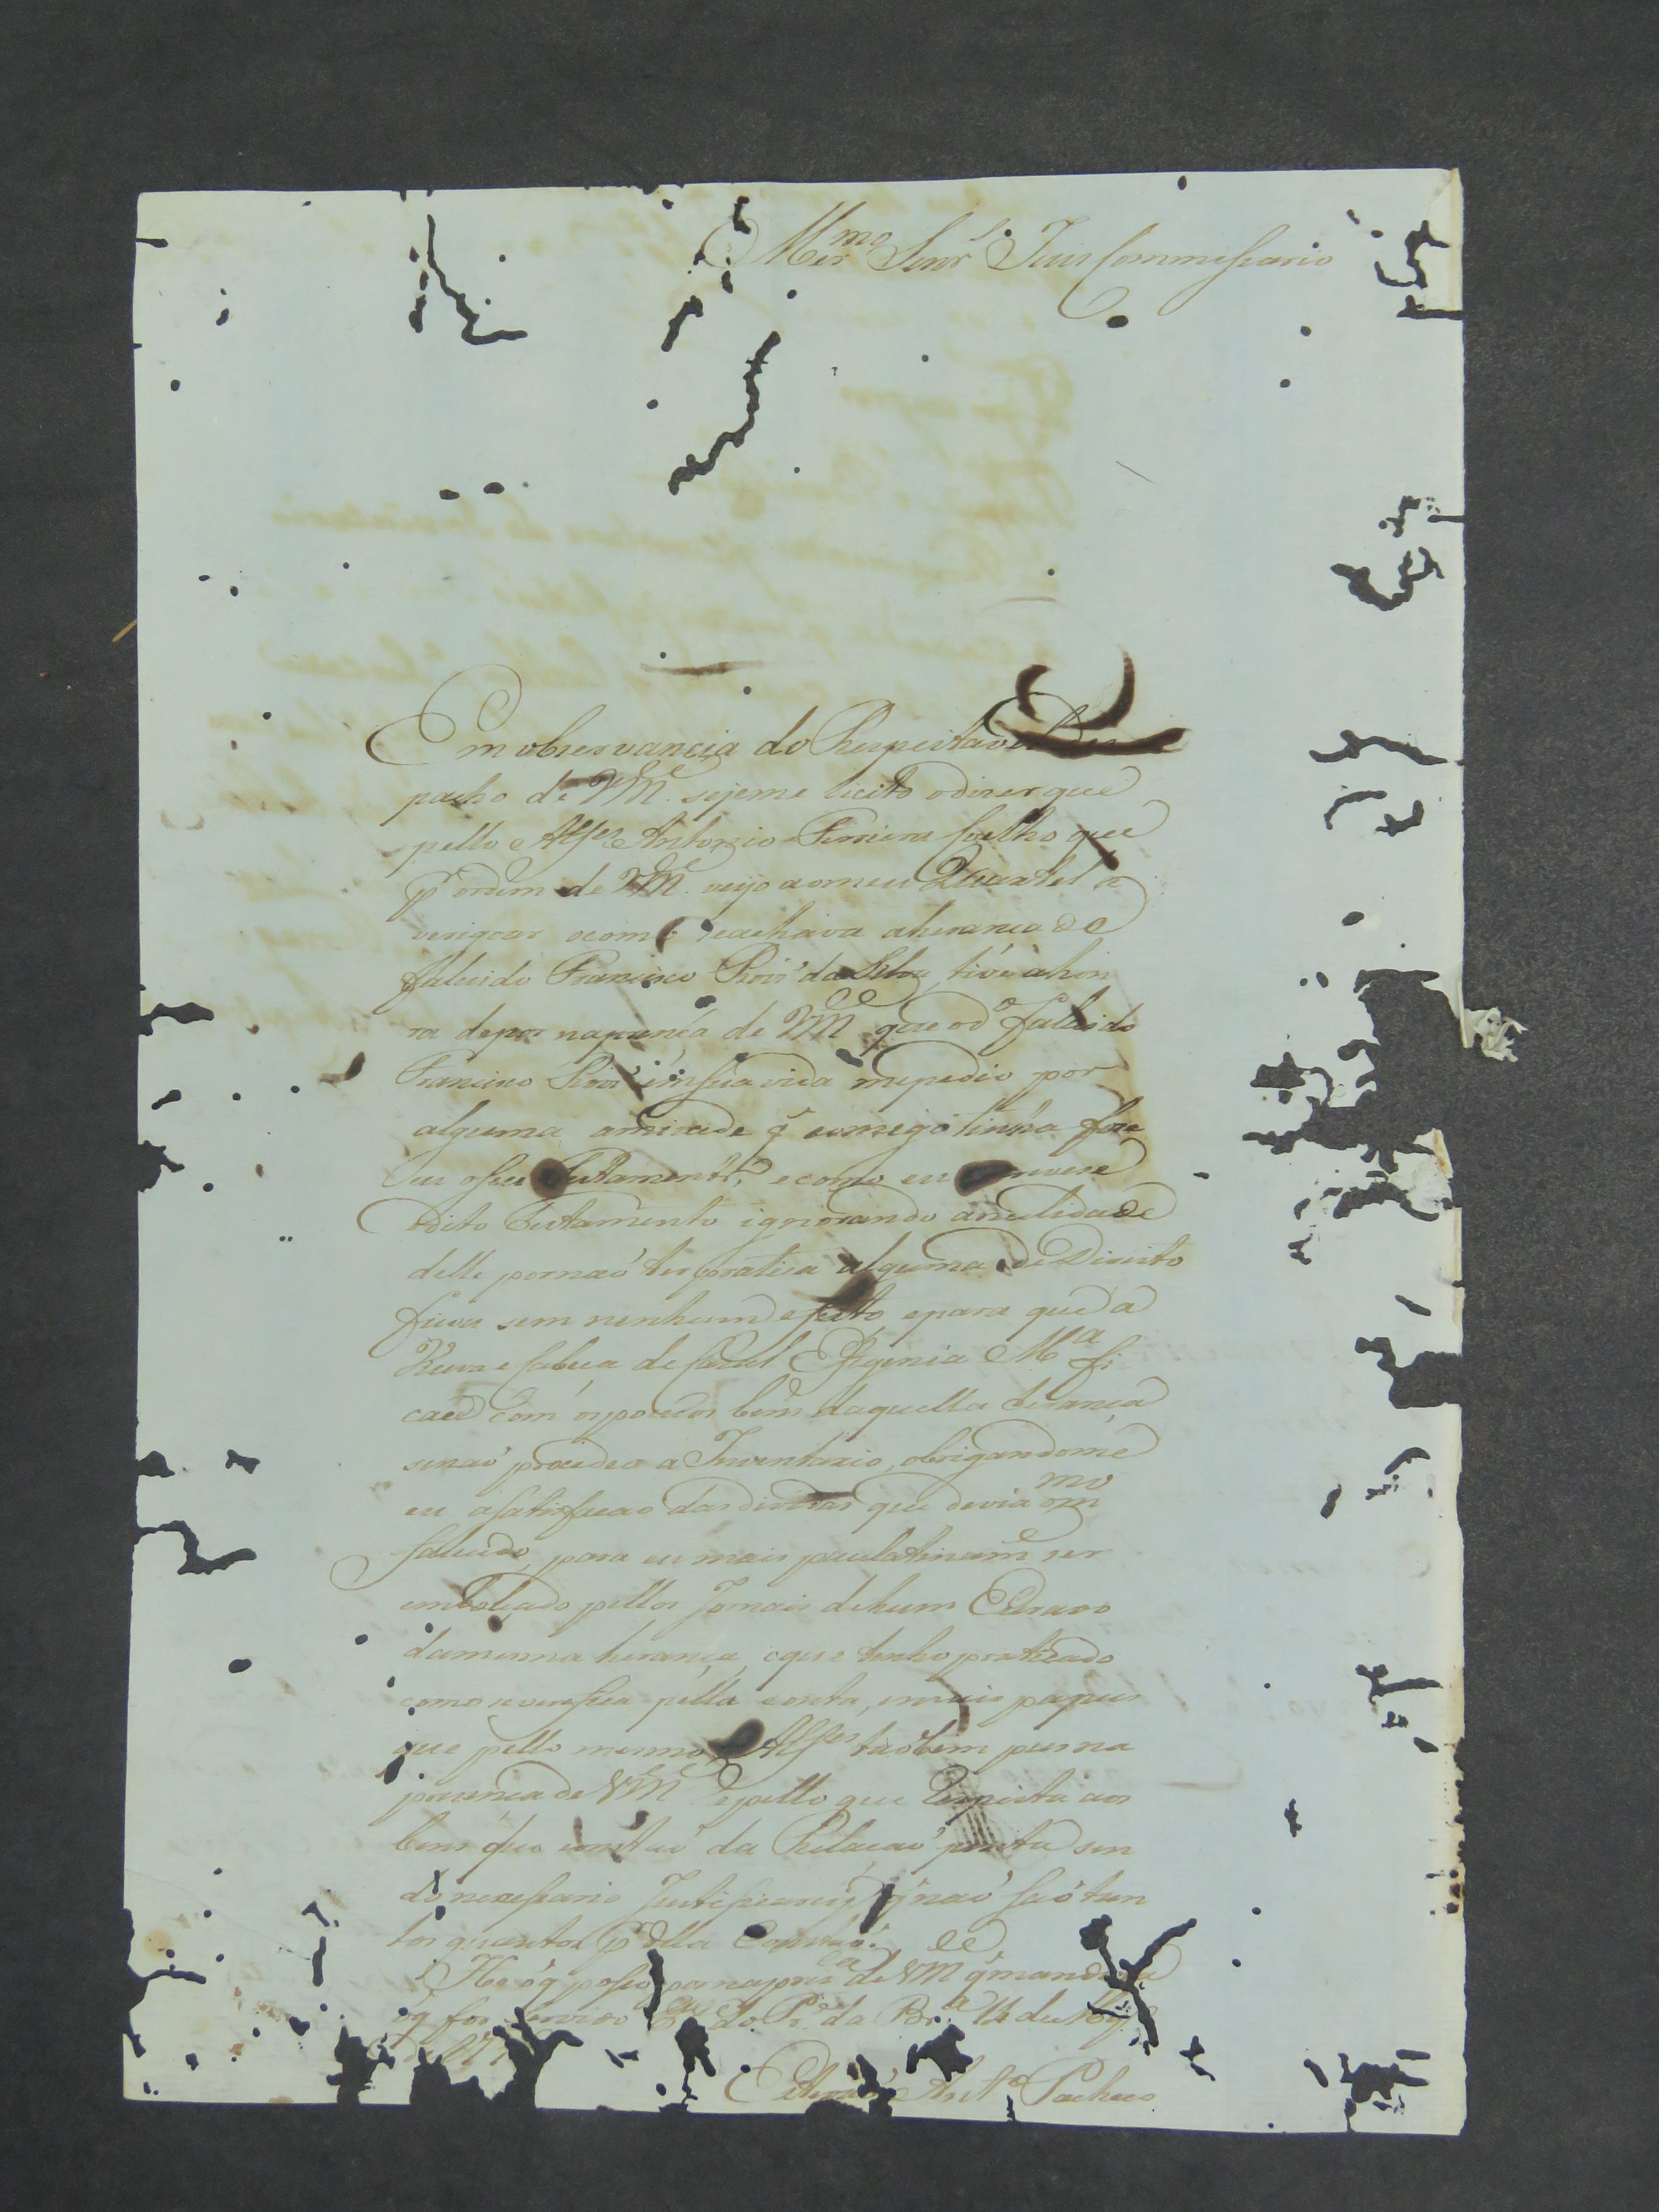 Mer.mo Snr. Juis Commessario
Em obresvancia do Respeitavel Des
pacho de VM.ce sejeme licito odizer que
pello Alfes Antonio Ferreira Coelho que
pr ordem de VM.ce veijo aomeu Quartel a
verigoar ocomo seachava aherança do
falecido Francisco Roiz' da Silva, tive ahon
ra depor naprença de VM.ce que od.o falecido
Francisco Roiz' emsua vida mepedio por
alguma amizade q' comsigo tinha fize
se eu oseu Testamento, e como eu
edito Testamento ignorando anulidade
delle pornaõ ter pratica alguma de Direito
ficou sem nenhum efeito, epara que a
Viuva e Cabeça de Cazal Efigenia M.a fi
caçe com os poucos bens daquella herança
senaõ procedeo a Inventario, obrigandome
eu asatisfacao das dividas que devia om.mo
falecido, para eu mais paulatinam.e ser
embolçado pellos Jornais dehum Escravo
damesma herança, oque tenho praticado
como severefica pella conta, emais papeis
que pello mesmo Alfes taobem pus na
prezença de VM.ce epello que Respeita aos
bens que constaõ da Relaçaõ junta sen
do necessario Justeficarey q' naõ saõ tan
tos quantos pr ella Constaõ.
He óq posso por napres.ca de VM.ce q' mandará
oq for servido do P.e da Br.a 14 de
Ant.o Pacheco